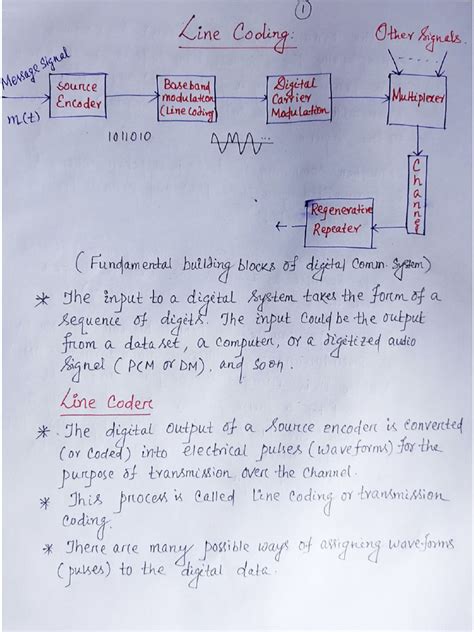 1
Line Coding:
Other Signals.
Message Signal
m(t)
Source
Encoder
1011010
Baseband
modulation
(Line Coding)
Digital
Carrier
Modulation
Multiplexer
Channel
Regenerative
Repeater
(Fundamental building blocks of digital Comm. System)
* The input to a digital system takes the form of a
sequence of digits. The input could be the output
from a data set, a computer, or a digitized audio
signal (PCM or DM), and soon.
Line Coder
* The digital output of a source encoder is converted
(or coded) into electrical pulses (waveforms) for the
purpose of transmission over the channel.
* This process is called line coding or transmission
coding.
* There are many possible ways of assigning wave-forms
(pulses) to the digital data.